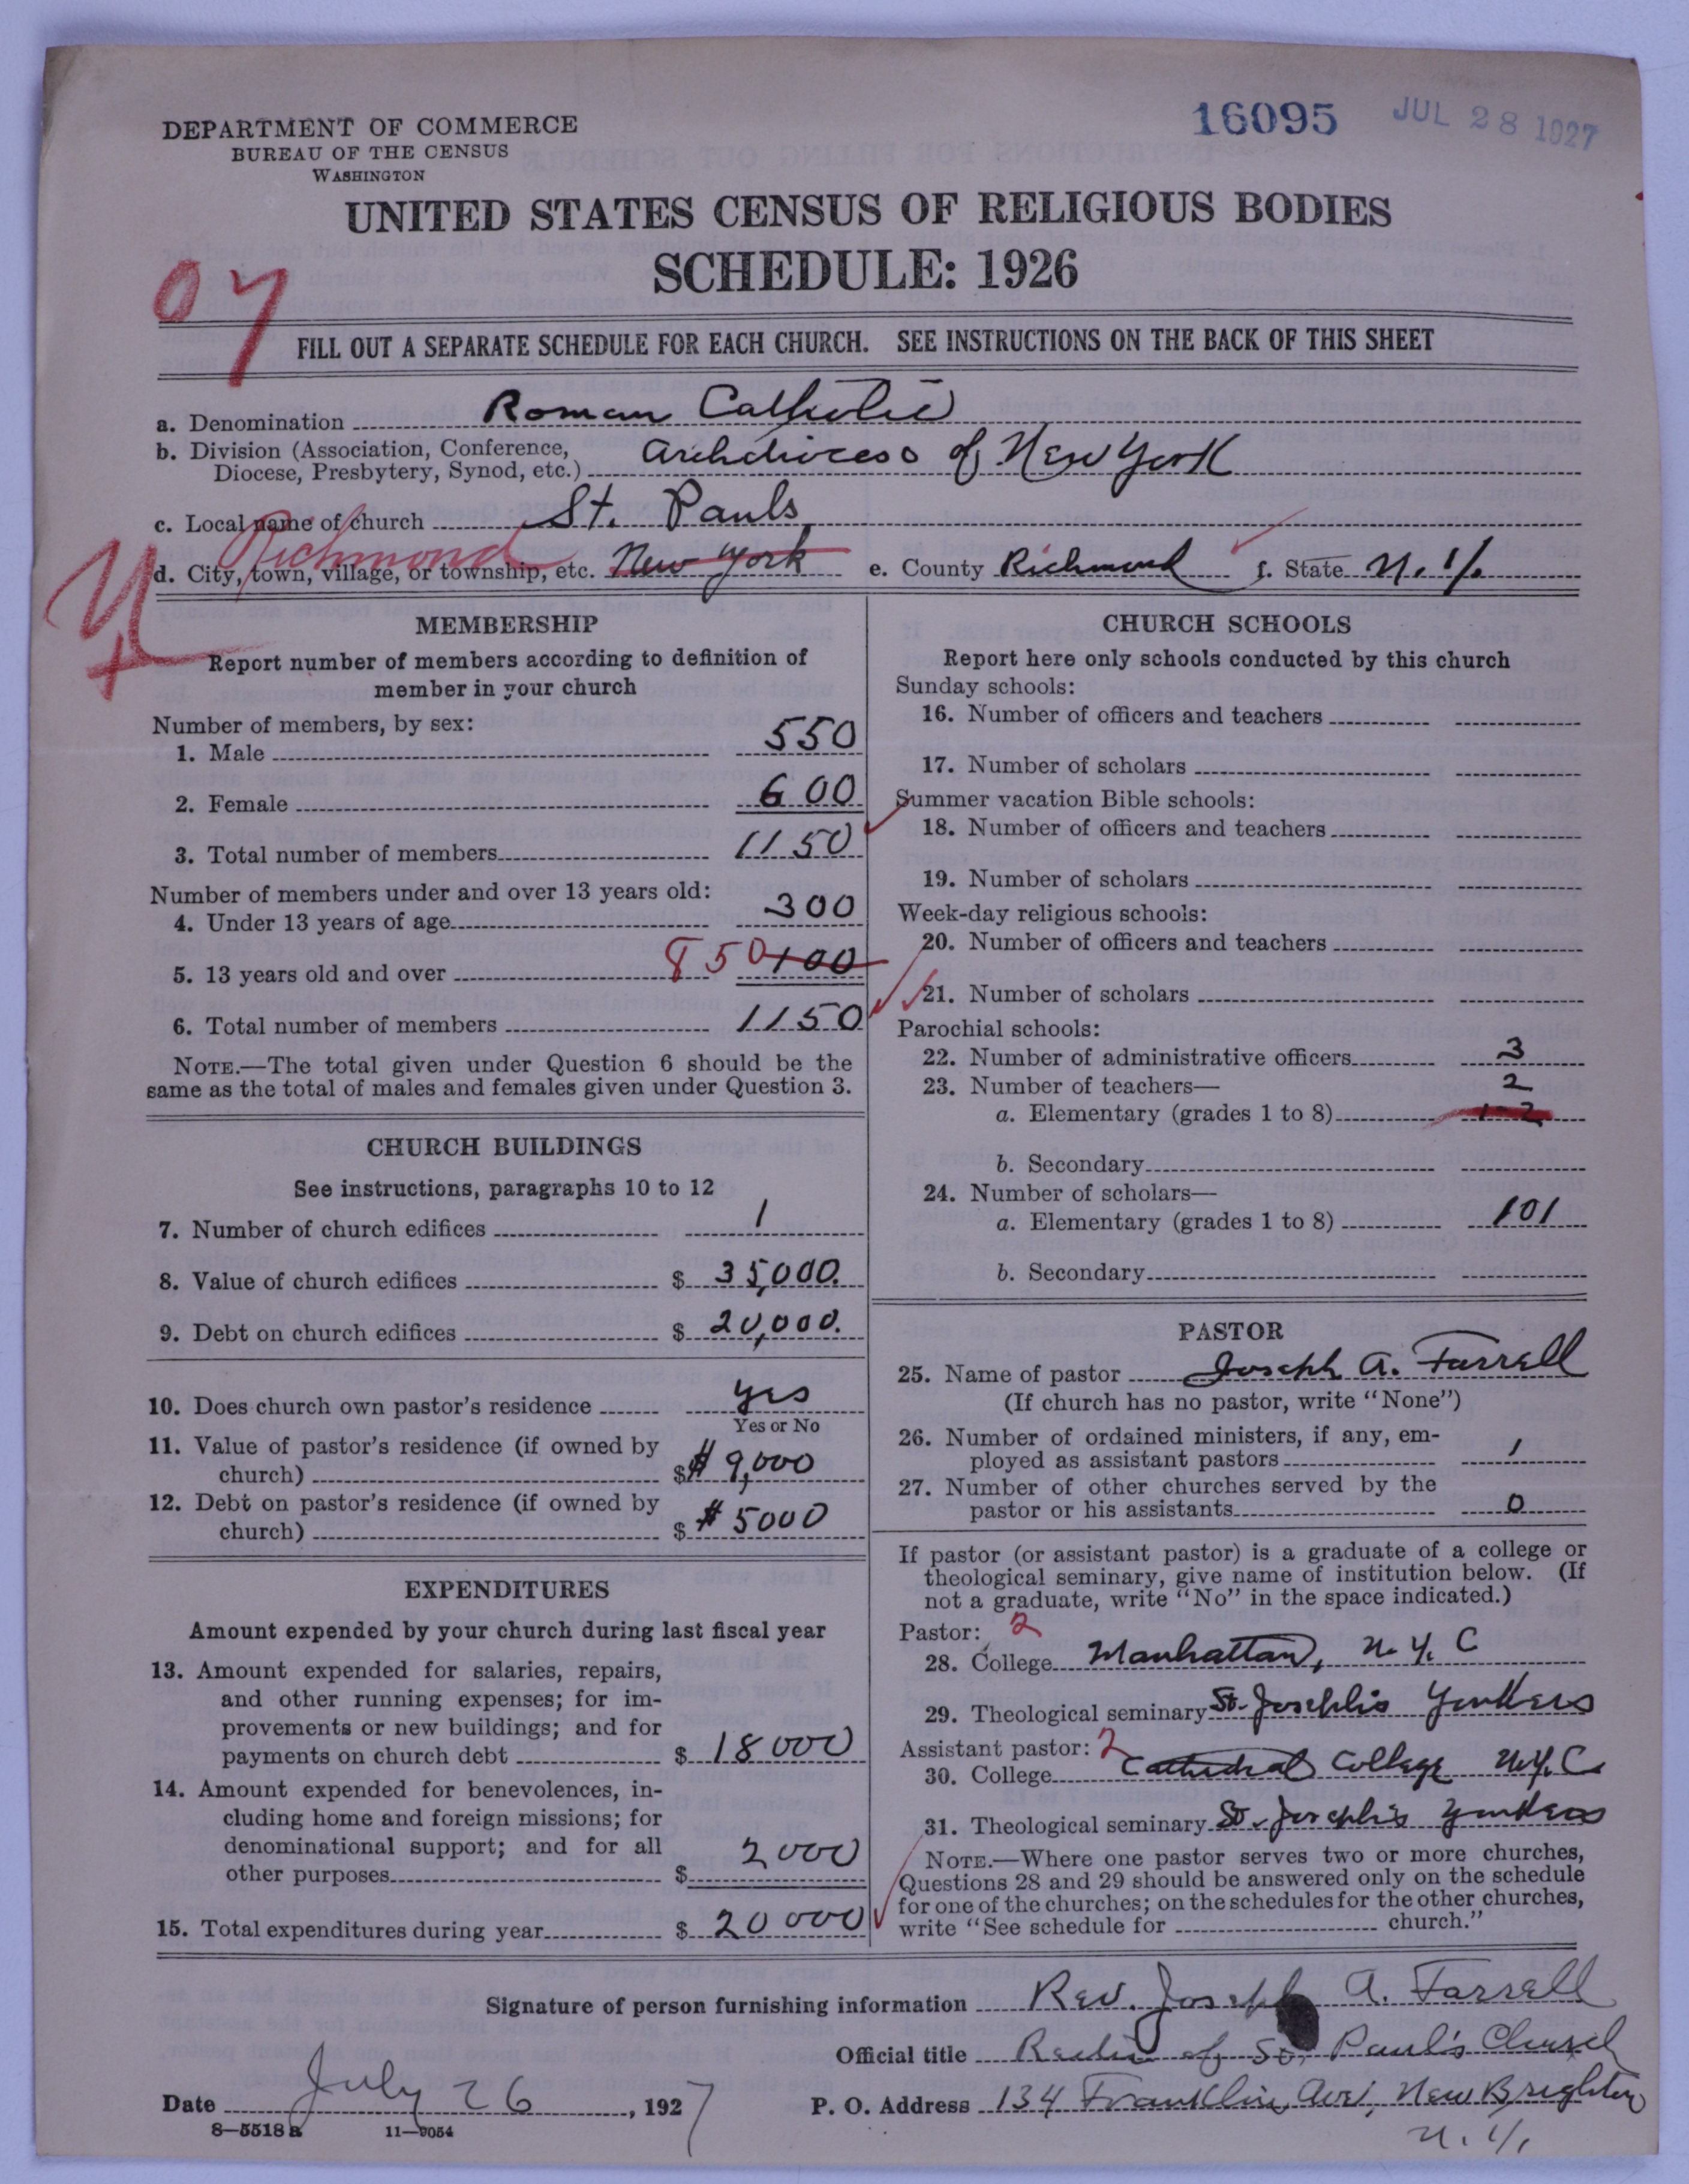 16095 JUL 28 1927
DEPARTMENT OF COMMERCE
BUREAU OF THE CENSUS
WASHINGTON
UNITED STATES CENSUS OF RELIGIOUS BODIES
SCHEDULE: 1926
07
FILL OUT A SEPARATE SCHEDULE FOR EACH CHURCH. SEE INSTRUCTIONS ON THE BACK OF THIS SHEET
a. Denomination Roman Catholic
b. Division (Association, Conference,
Diocese, Presbytery, Synod, etc.) Archdiocese of New York
c. Local name of church St. Pauls
Richmond
d. City, town, village, or township, etc. New York e. County Richmond f. State N.Y.
MEMBERSHIP
Report number of members according to definition of
member in your church
Number of members, by sex:
1. Male 550
2. Female 600
3. Total number of members 1150
Number of members under and over 13 years old:
4. Under 13 years of age 300
5. 13 years old and over 850 100
6. Total number of members 1150
NOTE.—The total given under Question 6 should be the
same as the total of males and females given under Question 3.
CHURCH BUILDINGS
See instructions, paragraphs 10 to 12
7. Number of church edifices 1
8. Value of church edifices $ 35,000.
9. Debt on church edifices $ 20,000.
10. Does church own pastor's residence yes
Yes or No
11. Value of pastor's residence (if owned by
church) $ $ 9,000
12. Debt on pastor's residence (if owned by
church) $ $ 5000
EXPENDITURES
Amount expended by your church during last fiscal year
13. Amount expended for salaries, repairs,
and other running expenses; for im-
provements or new buildings; and for
payments on church debt $ 18000
14. Amount expended for benevolences, in-
cluding home and foreign missions; for
denominational support; and for all
other purposes $ 2000
15. Total expenditures during year $ 20000
CHURCH SCHOOLS
Report here only schools conducted by this church
Sunday schools:
16. Number of officers and teachers
17. Number of scholars
Summer vacation Bible schools:
18. Number of officers and teachers
19. Number of scholars
Week-day religious schools:
20. Number of officers and teachers
21. Number of scholars
Parochial schools:
22. Number of administrative officers 3
23. Number of teachers— 2
a. Elementary (grades 1 to 8) 1-2
b. Secondary
24. Number of scholars—
a. Elementary (grades 1 to 8) 101
b. Secondary
PASTOR
25. Name of pastor Joseph A. Farrell
(If church has no pastor, write "None")
26. Number of ordained ministers, if any, em-
ployed as assistant pastors 1
27. Number of other churches served by the
pastor or his assistants 0
If pastor (or assistant pastor) is a graduate of a college or
theological seminary, give name of institution below. (If
not a graduate, write "No" in the space indicated.)
Pastor: 2
28. College Manhattan, N.Y.C
29. Theological seminary St. Joseph's Yonkers
Assistant pastor: 2
30. College Cathedral College N.Y.C
31. Theological seminary St. Joseph's Yonkers
NOTE.—Where one pastor serves two or more churches,
Questions 28 and 29 should be answered only on the schedule
for one of the churches; on the schedules for the other churches,
write "See schedule for church."
Signature of person furnishing information Rev. Joseph A. Farrell
Official title Rector of St. Paul's Church
Date July 26, 1927 P. O. Address 134 Franklin Ave, New Brighton
N.Y.
8—5518a 11—9054